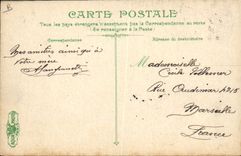 CARTE POSTALE
Tous les pays étrangers n'acceptent pas la Correspondance au verso
Se renseigner à la Poste.
Correspondance
Adresse du destinataire
Mes amitiés ainsi qu'à
Votre mère
Mademoiselle
Cécile
Rue
Marseille
France